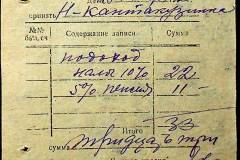 принять Н-Кантакузина
№№ бат. сч Содержание записи Сумма
подоход
налог 10% 22
5% пенсия 11-
Итого 33
сумма тридцать три